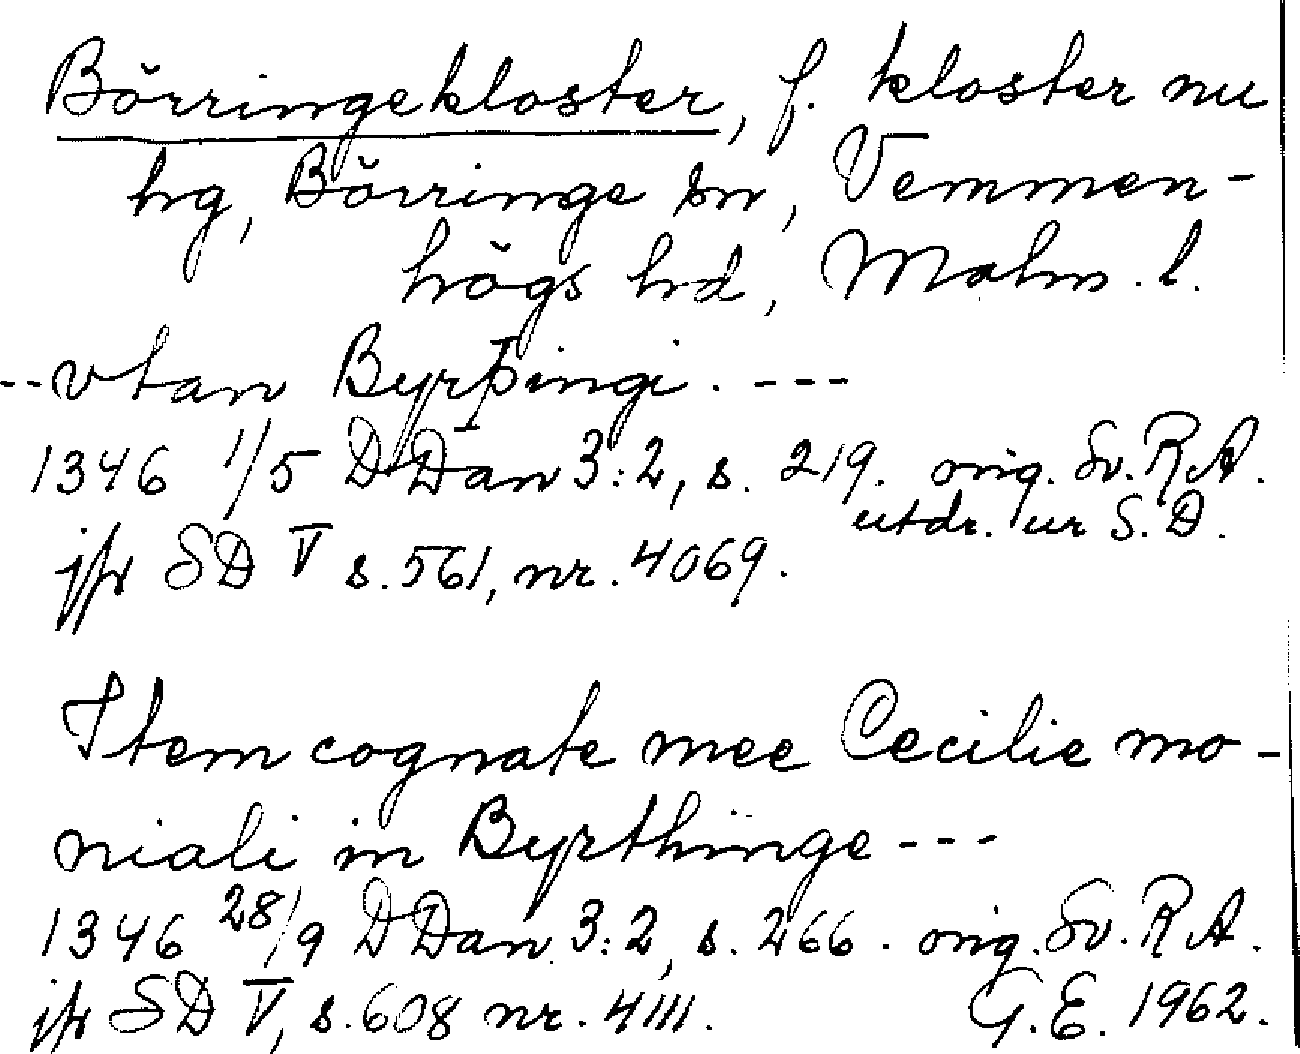 Börringekloster, f. kloster nu
hg, Börringe sn, Vemmen-
högs hd, Malm. l.
--vtan Byrþingi. ---
1346 1/5 DDan 3:2, s. 219. orig. Sv. R.A.
utdr. ur S.D.
jfr SD V s. 561, nr. 4069.
Item cognate mee Cecilie mo-
niali in Byrthinge ---
1346 28/9 DDan 3:2, s. 266. orig. Sv. R.A.
jfr SD V, s. 608 nr. 4111.
G.E. 1962.